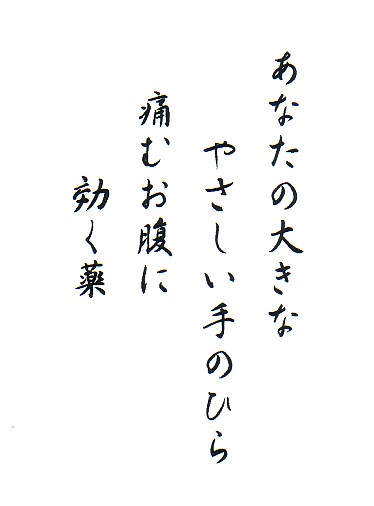 あなたの大きな
やさしい手のひら
痛むお腹に
効く薬